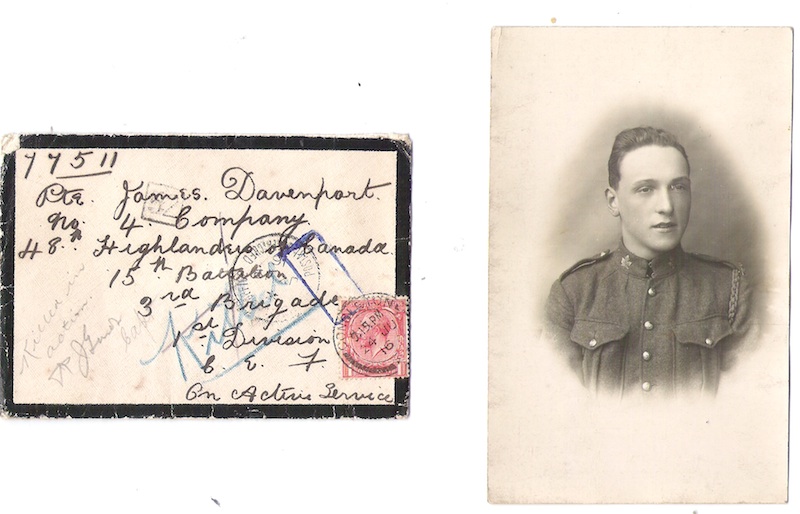 77511
Pte. James. Davenport.
No. 4. Company
48th Highlanders of Canada
15th Battalion
3rd Brigade
1st Division
C. E. F
On Active Service
Killed in
action.
Killed
16